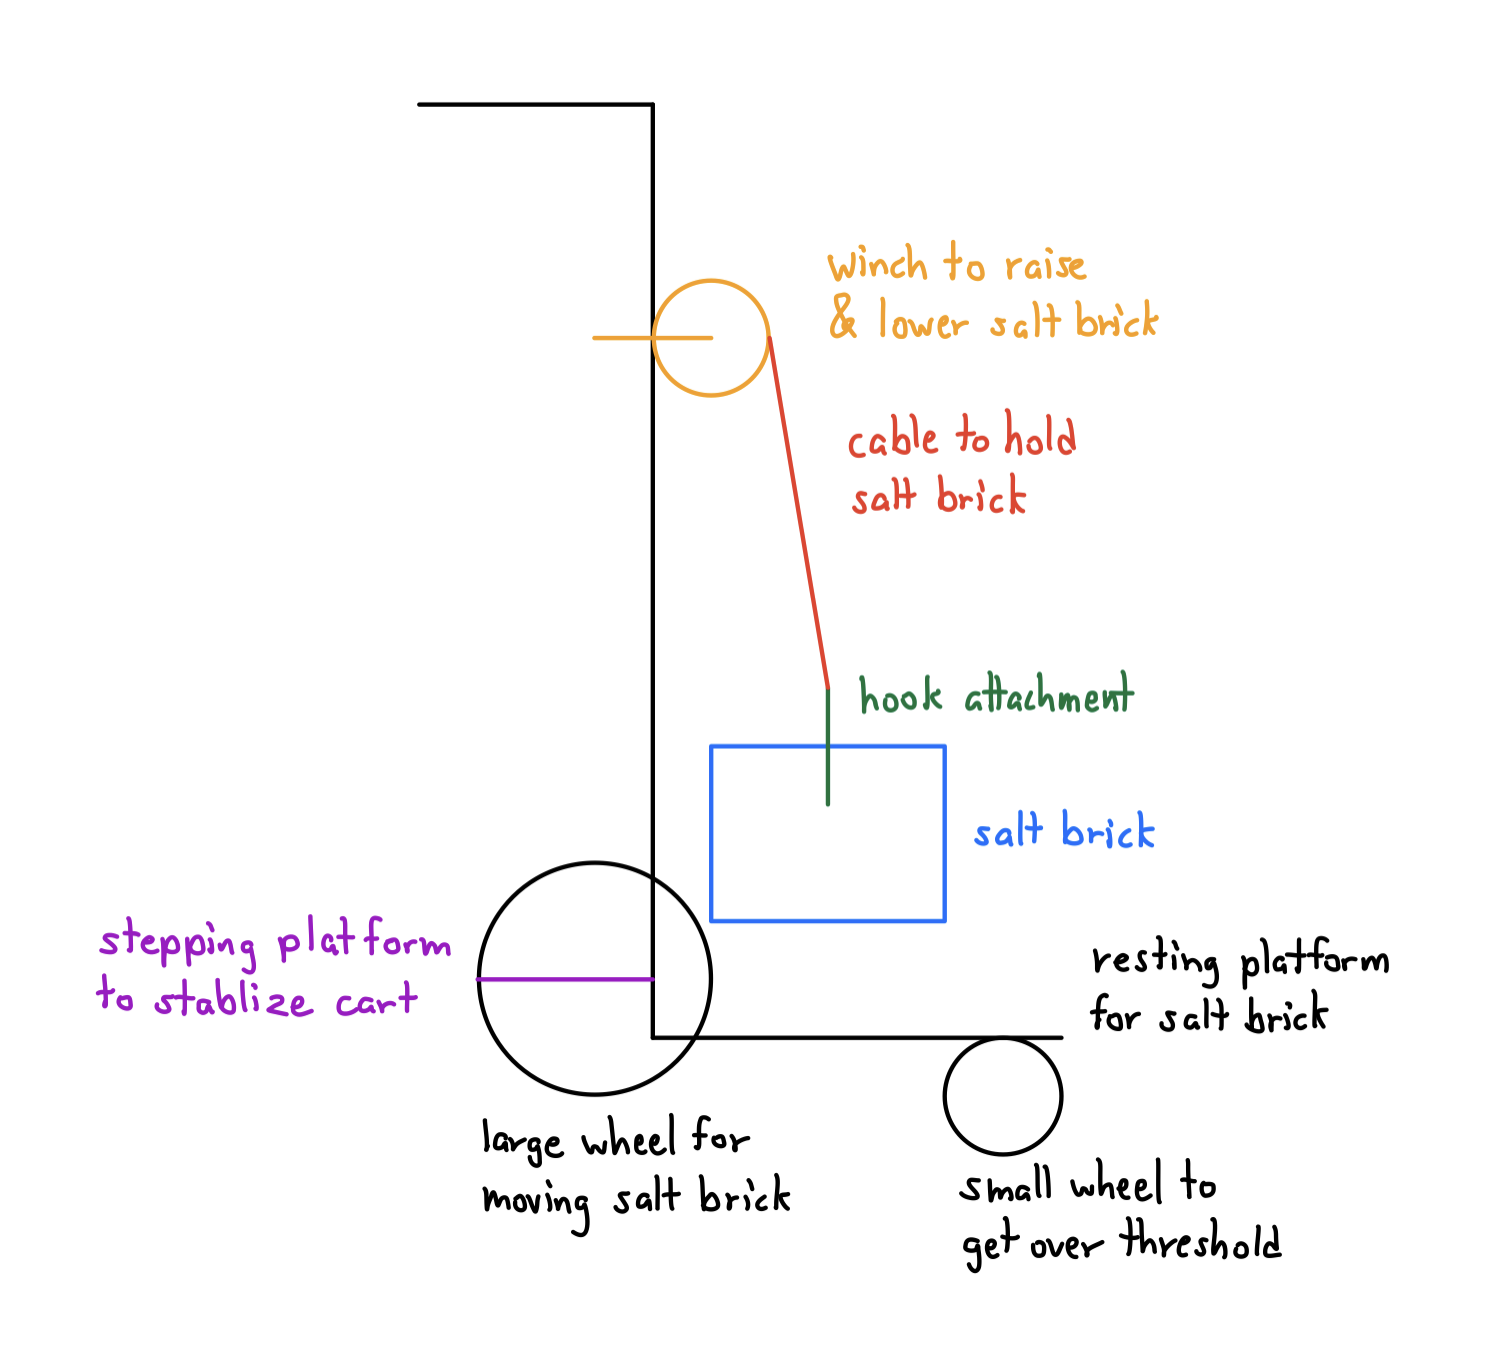 winch to raise
& lower salt brick
cable to hold
salt brick
hook attachment
salt brick
stepping platform
to stablize cart
resting platform
for salt brick
large wheel for
moving salt brick
small wheel to
get over threshold